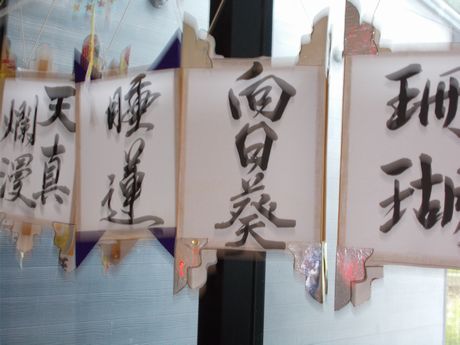 天真
爛漫
睡蓮
向日葵
珊瑚